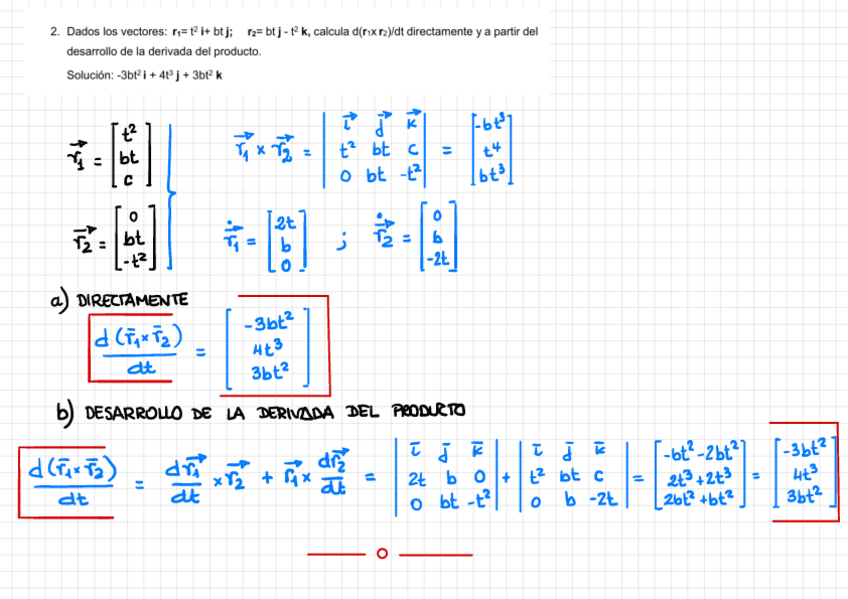 2. Dados los vectores: r₁= t² i+ bt j; r₂= bt j - t² k, calcula d(r₁x r₂)/dt directamente y a partir del
desarrollo de la derivada del producto.
Solución: -3bt² i + 4t³ j + 3bt² k
r₁ = [t² bt c]
r₁ × r₂ = | i j k ; t² bt c ; 0 bt -t² | = [-bt³ t⁴ bt³]
r₂ = [0 bt -t²]
ṙ₁ = [2t b 0] ; ṙ₂ = [0 b -2t]
a) DIRECTAMENTE
d(r̄₁×r̄₂)/dt = [-3bt² 4t³ 3bt²]
b) DESARROLLO DE LA DERIVADA DEL PRODUCTO
d(r̄₁×r̄₂)/dt = dr₁/dt × r₂ + r₁ × dr₂/dt = | i j k ; 2t b 0 ; 0 bt -t² | + | i j k ; t² bt c ; 0 b -2t | = [-bt²-2bt² 2t³+2t³ 2bt²+bt²] = [-3bt² 4t³ 3bt²]